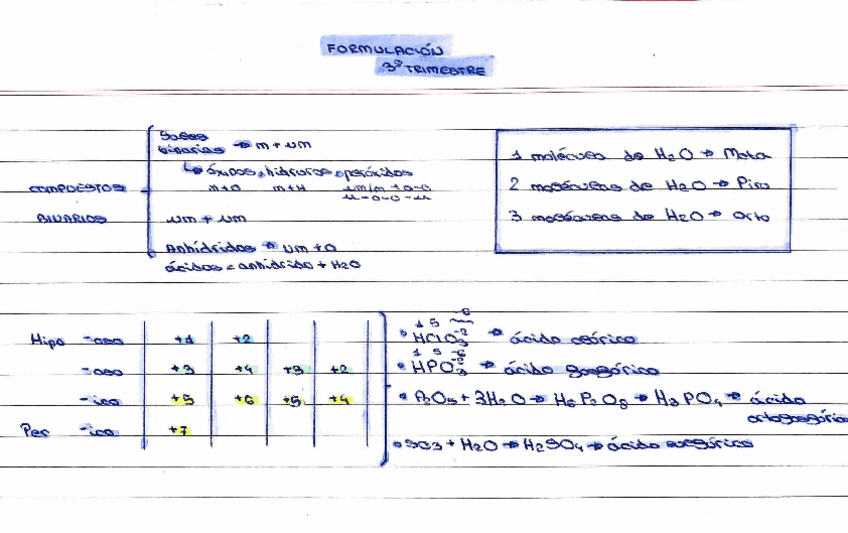 FORMULACIÓN
3º TRIMESTRE
COMPUESTOS BINARIOS
Sales binarias → m + nm
↳ óxidos, hidruros, peróxidos
m+O m+H nm/m + O-O
H-O-O-H
nm + nm
Anhídridos → nm + O
ácidos = anhídrido + H2O
1 molécula de H2O → Meta
2 moléculas de H2O → Piro
3 moléculas de H2O → Orto
Hipo -oso +1 +2
-oso +3 +4 +3 +2
-ico +5 +6 +5 +4
Per -ico +7
1 5 -6
• HClO3 -2 → ácido clórico
1 5 -6
• HPO3 -2 → ácido fosfórico
• P2O5 + 3H2O → H6P2O8 → H3PO4 → ácido ortofosfórico
• SO3 + H2O → H2SO4 → ácido sulfúrico